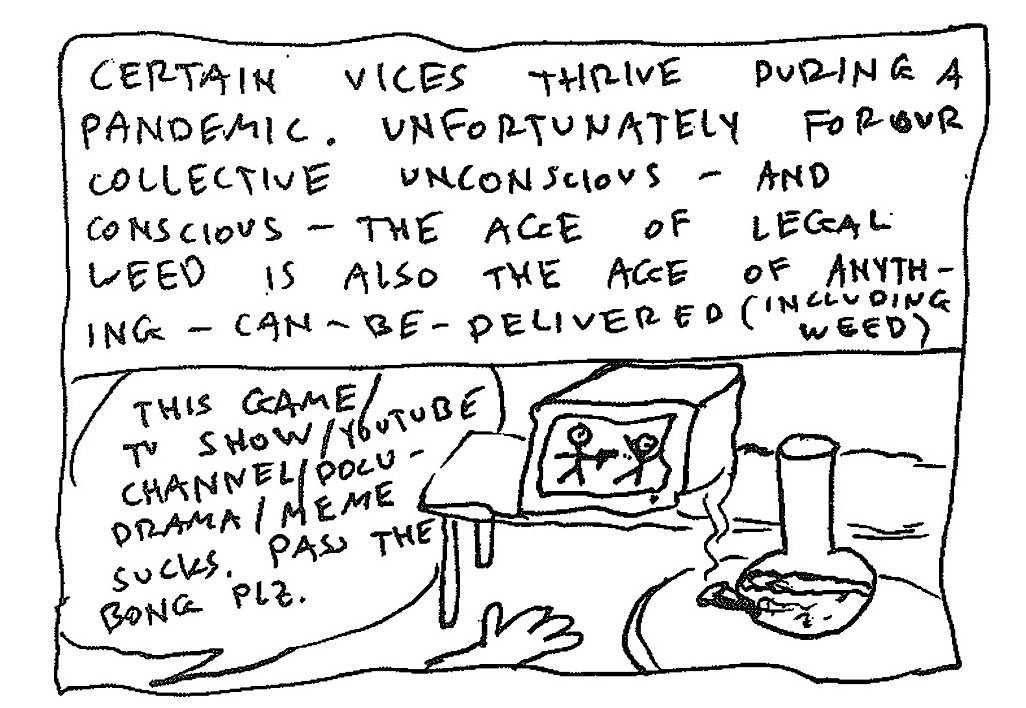 CERTAIN VICES THRIVE DURING A
PANDEMIC. UNFORTUNATELY FOR OUR
COLLECTIVE UNCONSCIOUS - AND
CONSCIOUS - THE AGE OF LEGAL
WEED IS ALSO THE AGE OF ANYTH-
ING-CAN-BE-DELIVERED (INCLUDING
WEED)
THIS GAME/
TV SHOW/YOUTUBE
CHANNEL/DOCU-
DRAMA/MEME
SUCKS. PASS THE
BONG PLZ.